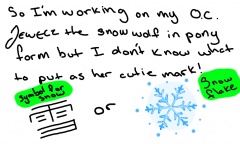 So I'm working on my O.C.
Jewecc the snow wolf in pony
form but I don't know what
to put as her cutie mark!
symbol for
snow
or
Snow
flake